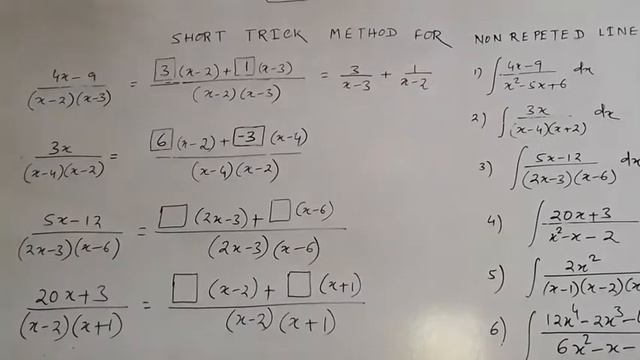 SHORT TRICK METHOD FOR NON REPETED LINE
(4x-9)/((x-2)(x-3)) = (3(x-2)+1(x-3))/((x-2)(x-3)) = 3/(x-3) + 1/(x-2)
(3x)/((x-4)(x-2)) = (6(x-2)+-3(x-4))/((x-4)(x-2))
(5x-12)/((2x-3)(x-6)) = (□(2x-3)+□(x-6))/((2x-3)(x-6))
(20x+3)/((x-2)(x+1)) = (□(x-2)+□(x+1))/((x-2)(x+1))
1) ∫ (4x-9)/(x²-5x+6) dx
2) ∫ (3x)/((x-4)(x+2)) dx
3) ∫ (5x-12)/((2x-3)(x-6)) dx
4) ∫ (20x+3)/(x²-x-2)
5) ∫ (2x²)/((x-1)(x-2)(x
6) ∫ (12x⁴-2x³-)/(6x²-x-